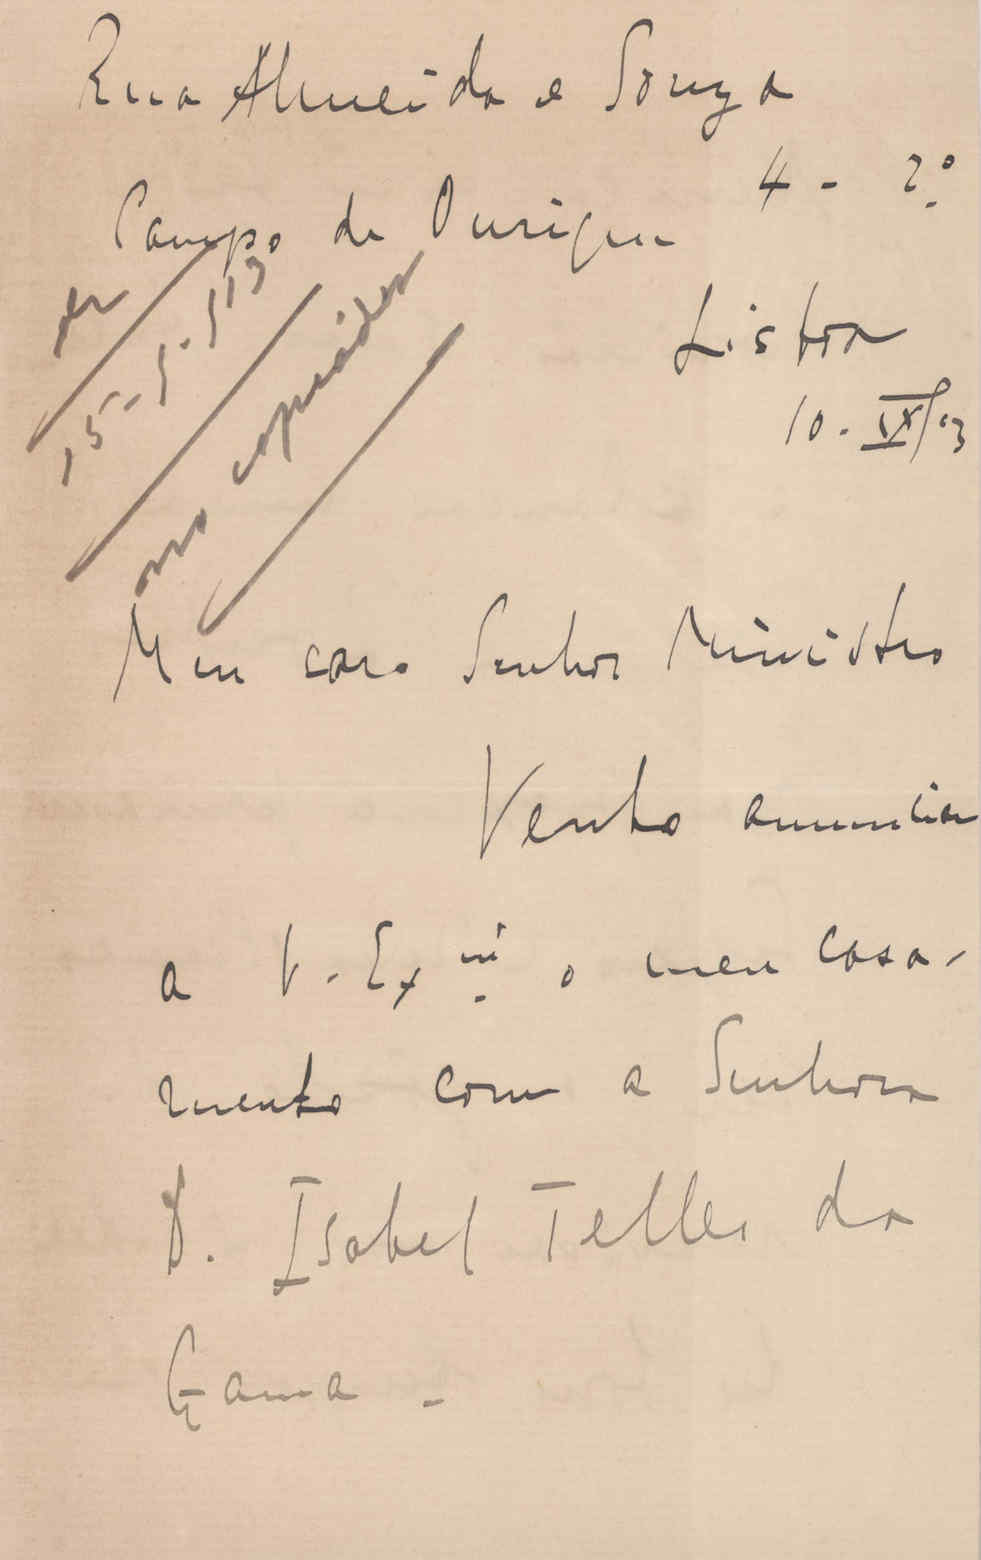 Rua Almeida e Souza
4 - 2.º
Campo de Ourique
Lisboa
10-IX/13
15-9-913
no copiador
Meu caro Senhor Ministro
Venho annunciar
a V. Ex.ª o meu casa-
mento com a Senhora
D. Isabel Telles da
Gama -